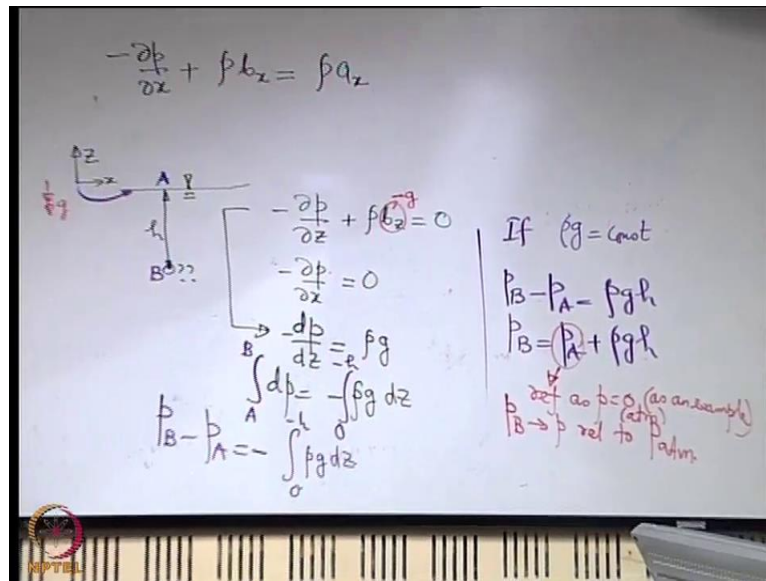 -∂p/∂x + ρb_x = ρa_x
z
x
A
g
h
B ??
-∂p/∂z + ρb_z = 0
-g
-∂p/∂x = 0
-dp/dz = ρg
∫_A^B dp = -∫_0^{-h} ρg dz
p_B - p_A = -∫_0^{-h} ρg dz
If ρg = const
p_B - p_A = ρgh
p_B = p_A + ρgh
ref as p=0 (as an example)
(atm)
p_B → p rel to p_atm.
NPTEL